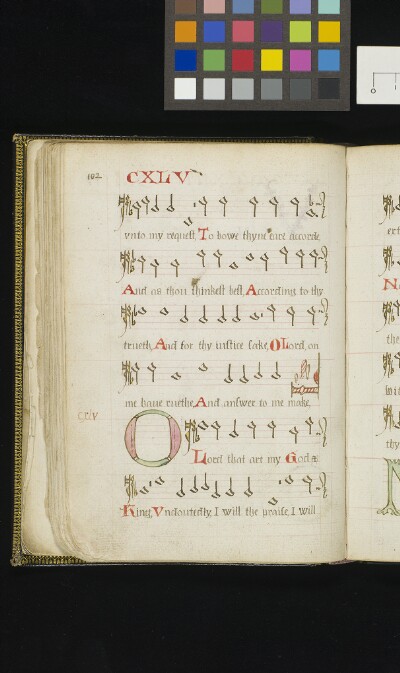 102
CXLV
vnto my request, To bowe thyne eare accorde,
And as thou thinkest best, According to thy
trueth, And for thy iustice sake, O Lord, on
me haue ruethe, And answer to me make,
CXLV
O Lord that art my God &
King, Vndoutedly, I will the praise, I will
N
the
thy
N